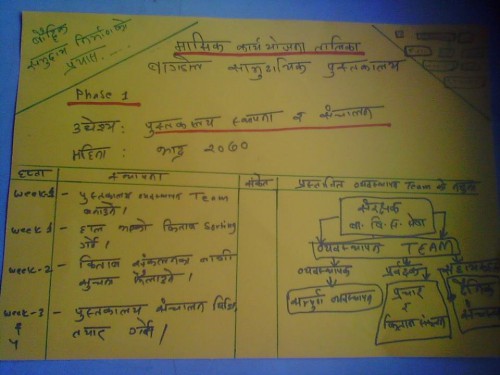 बौद्धिक
समुदाय निर्माणको
प्रयास....
मासिक कार्य योजना तालिका
सामुदायिक पुस्तकालय
Phase 1
उद्देश्य: पुस्तकालय स्थापना र संचालन
महिना: भाद्र २०७०
हप्ता
संकेत
प्रस्तावित व्यवस्थापन Team को
week-1 - पुस्तकालय व्यवस्थापन Team
बनाउने।
week-1 - हाल भएको किताब Sorting
गर्ने।
week-2 - किताब संकलनका लागि
सूचना फैलाउने।
week-3 - पुस्तकालय संचालन विधि
तयार गर्ने।
संरक्षक
व्यवस्थापन TEAM
व्यवस्थापक
सम्पूर्ण व्यवस्थापन
प्रचार
र
किताब संकलन
दैनिक